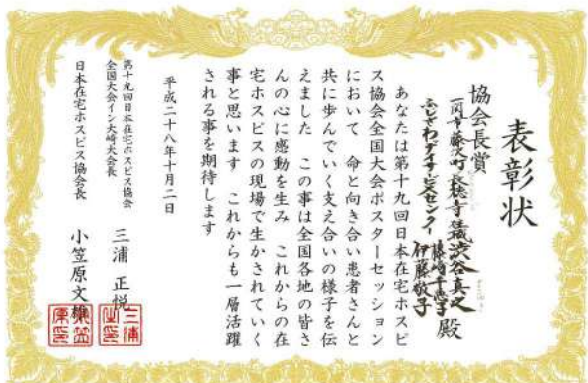 表彰状
協会長賞
一関市藤沢町 長徳寺 渋谷真之
ふじさわデイサービスセンター 藤崎千恵子
伊藤敬子
殿
あなたは第十九回日本在宅ホスピ
ス協会全国大会ポスターセッション
において 命と向き合い患者さんと
共に歩んでいく支え合いの様子を伝
えました この事は全国各地の皆さ
んの心に感動を生み これからの在
宅ホスピスの現場で生かされていく
事と思います これからも一層活躍
される事を期待します
平成二十八年十月二日
第十九回日本在宅ホスピス協会
全国大会イン大崎大会長
三浦 正悦
日本在宅ホスピス協会長
小笠原文雄